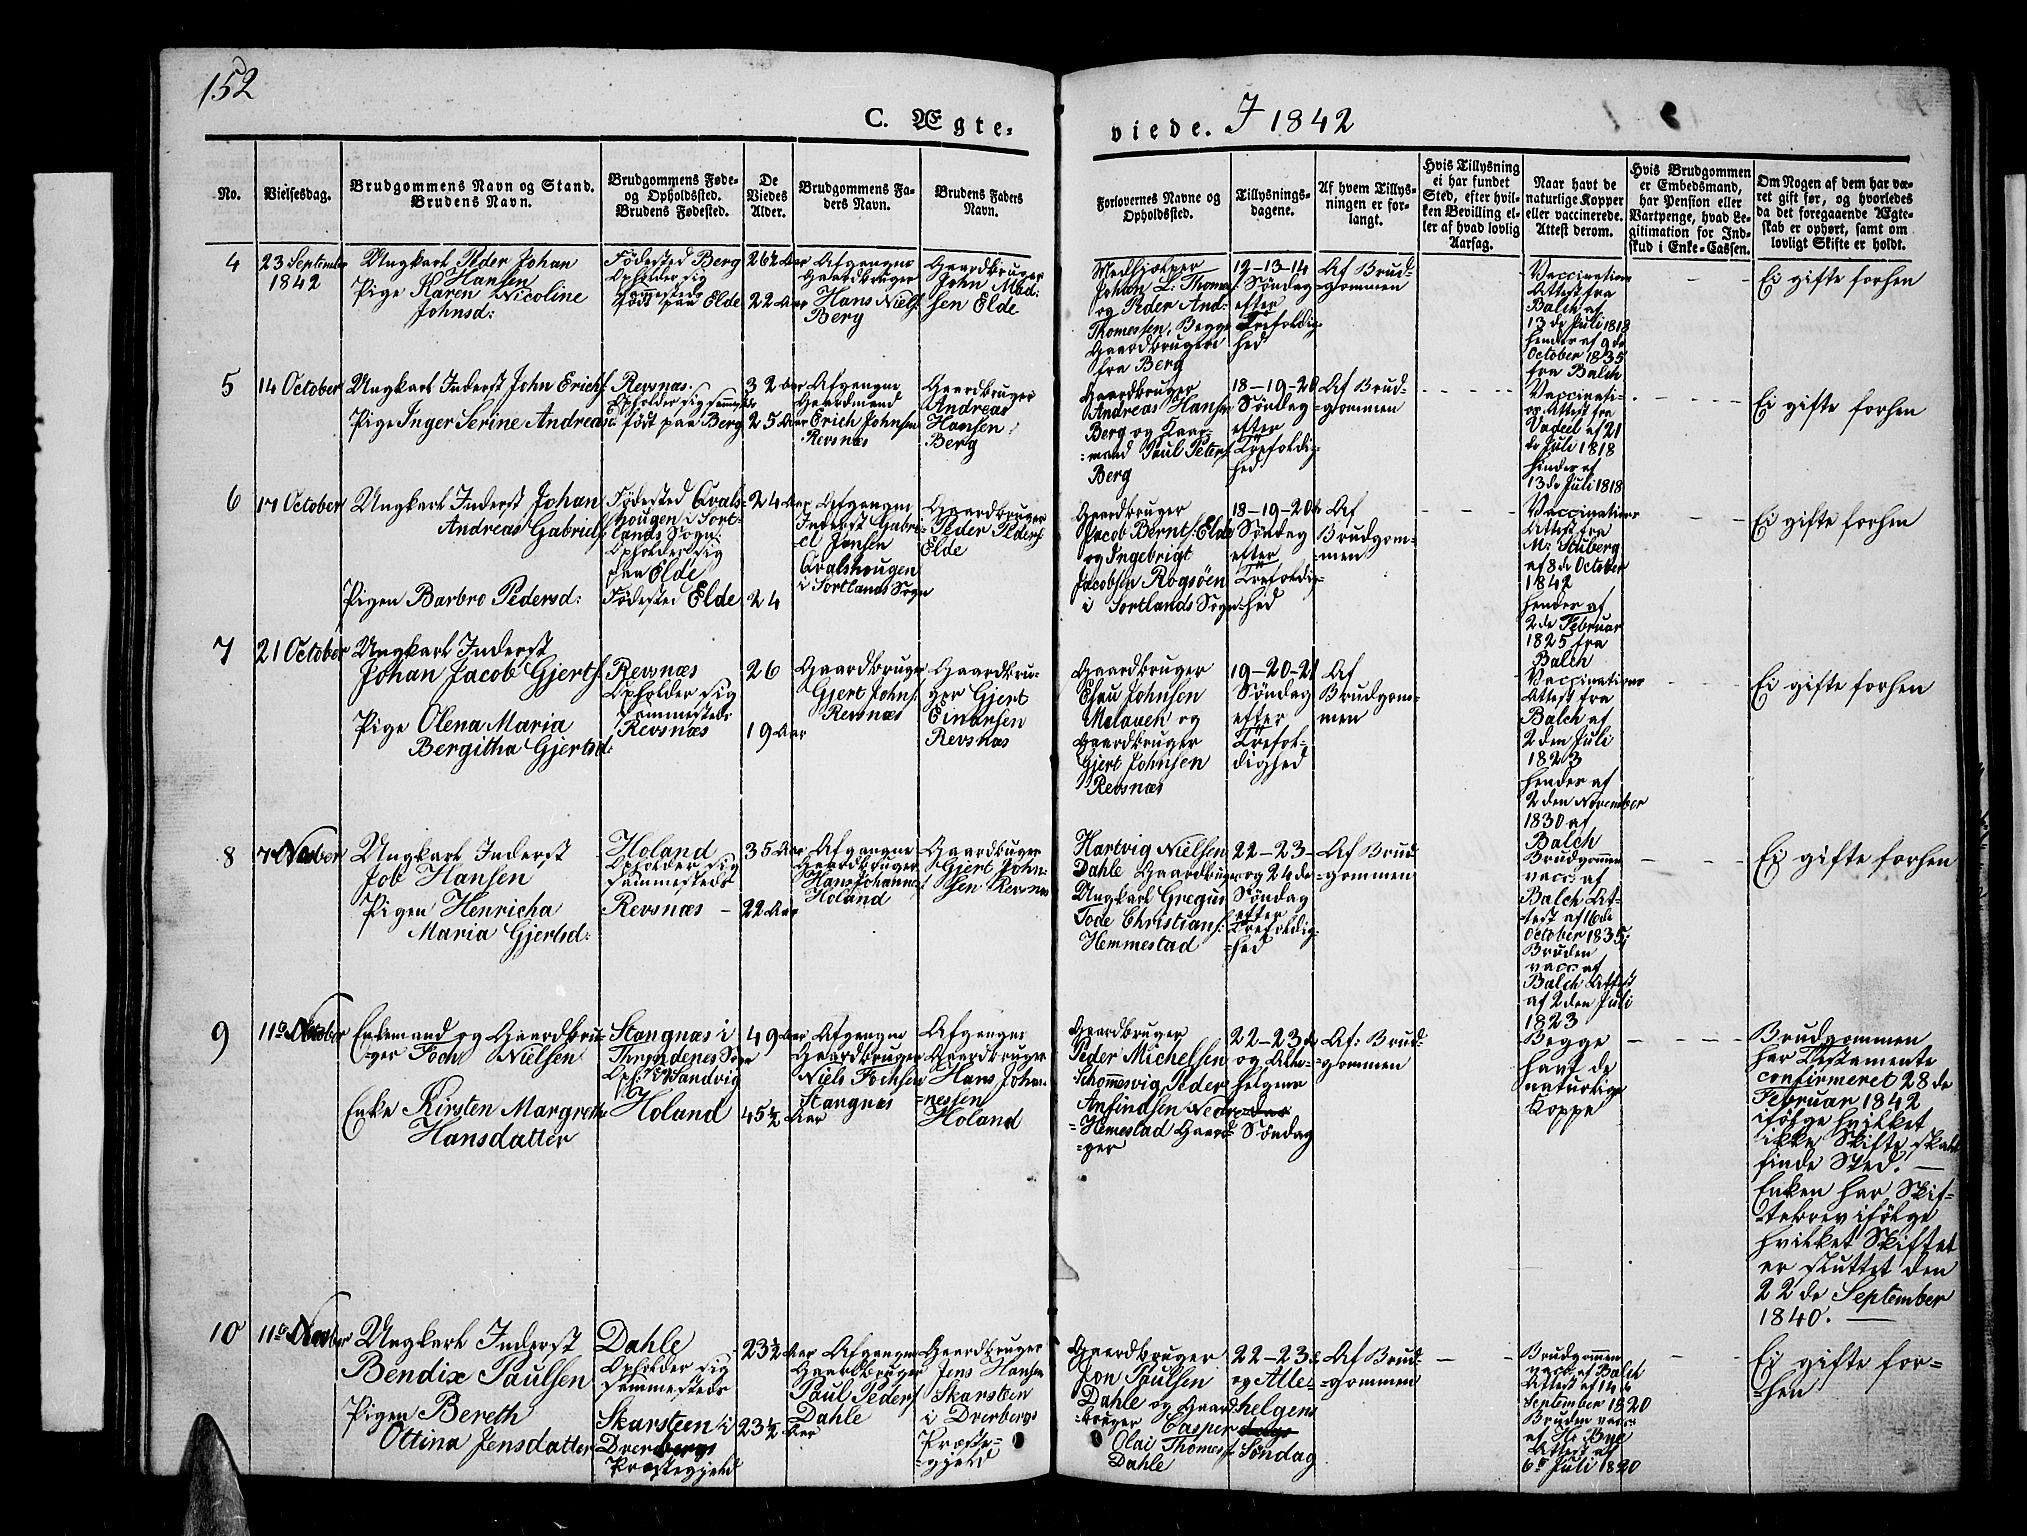 152
C. Ægte-
viede. I 1842
No.
Vielsesdag.
Brudgommens Navn og Stand.
Brudens Navn.
Brudgommens Føde-
og Opholdssted.
Brudens Fødested.
De
Viedes
Alder.
Brudgommens Fa-
ders Navn.
Brudens Faders
Navn.
Forlovernes Navne og
Opholdssted.
Tillysnings-
dagene.
Af hvem Tillys-
ningen er for-
langt.
Hvis Tillysning
ei har fundet
Sted, efter hvil-
ken Bevilling el-
ler af hvad lovlig
Aarsag.
Naar havt de
naturlige Kopper
eller vaccinerede.
Attest derom.
Hvis Brudgommen
er Embedsmand,
har Pension eller
Vartpenge, hvad Le-
gitimation for Ind-
skud i Enke-Cassen.
Om Nogen af dem har væ-
ret gift før, og hvorledes
da det foregaaende Ægte-
skab er ophørt, samt om
lovligt Skifte er holdt.
4
23 September
1842
Ungkarl Peder Johan
Hansen
Pige Karen Nicoline
Johnsd:
Fødested Berg
Opholder sig
sammesteds
født paa Elde
26½ Aar
22 Aar
Afgangne
Gaardbruger
Hans Niels
Berg
Gaardbruger
John Mad-
sen Elde
Medhjelper
Johan L. Thomes
og Peder And:
Thomessen, Begge
Gaardbrugere
fra Berg
12-13-14
Søndag
efter
Trefoldig-
hed
Af Brud-
gommen
Vaccinations
Attest fra
Balch af
13 de Juli 1818
hendes af 9 de
October 1835
fra Balch
Ei gifte forhen
5
14 October
Ungkarl Inderst John Erichs
Pige Inger Serine Andreasd
Revsnæs.
Opholder sig sammesteds
født paa Berg
32 Aar
25 Aar
Afgangne
Gaardmand
Erich Johnsen
Revsnæs
Gaardbruger
Andreas
Hansen
Berg
Gaardbruger
Andreas Hansen
Berg og Gaar-
mand Paul Peters
Berg
18-19-20
Søndag
efter
Trefoldig-
hed
Af Brud-
gommen
Vaccinati-
ons Attest fra
af 21
de Juli 1818
hendes af
13 de Juli 1818
Ei gifte forhen
6
17 October
Ungkarl Inderst Johan
Andreas Gabriels
Pigen Barbro Pedersd:
Fødested Qvals-
hougen i Sort-
lands Sogn.
Opholder sig
paa Elde
Fødested Elde
24 Aar
24
Afgangne
Inderst Gabri-
el Jonsen
Qvalshougen
i Sortlands Sogn
Gaardbruger
Peder Peders
Elde
Gaardbruger
Jacob Bernts Elde
og Ingebrigt
Jacobsen Rogsøen
i Sortlands Sogn
18-19-20de
Søndag
efter
Trefoldig-
hed
Af
Brudgom-
men
Vaccinations
Attest fra
af 8 de October
1842
hendes af
2 de Februar
1825 fra
Balch
Ei gifte forhen
7
21 October
Ungkarl Inderst
Johan Jacob Gjerts
Pige Olena Maria
Bergitha Gjertsd:
Revsnæs
Opholder sig
sammesteds
Revsnæs
26
19 Aar
Gaardbruger
Gjert Johns
Revsnæs
Gaardbru-
ger Gjert
Einarsen
Revsnæs
Gaardbruger
Esau Johnsen
og
Gaardbruger
Gjert Johnsen
Revsnæs
19-20-21
Søndag
efter
Trefol-
dighed
Af
Brudgom-
men
Vaccinations
Attest fra
Balch af
2 den Juli
1823
hendes af
2 den November
1830 af
Balch
Ei gifte forhen
8
7 Novber
Ungkarl Inderst
Job Hansen
Pigen Henricha
Maria Gjertsd:
Holand
Opholder sig
sammesteds
Revsnæs
35 Aar
22 Aar
Afgangne
Gaardbruger
Hans Johanne-
Holand
Gaardbruger
Gjert John-
sen Revsnæs
Hartvig Nielsen
Dahle Gaardbruger
Ungkarl Gregus
Tode Christians:
Hemmestad
22-23-
og 24 de
Søndag
efter
Trefoldig-
hed
Af Brud
gommen
Brudgommen
vacc: af
Balch At-
test af 16 de
October 1835;
Bruden
vacc: af
Balch Attest
af 2 den Juli
1823
Ei gifte forhen
9
11te Novber
Enkemand og Gaardbru-
ger Foch Nielsen
Enke Kirsten Margrethe
Hansdatter
Stangnæs i
Throndenes Sogn
Oph: paa Sandvig
Holand
49 Aar
45½
Aar
Afgangne
Gaardbruger
Niels Fochsen
Stangnæs
Afgangne
Gaardbruger
Hans Johan-
nessen
Holand
Gaardbruger
Peder Michelsen
Peder
Anfindsen Nedre
Hemestad Gaard-
ger
22-23de
og Alle-
helgens
Søndag
Af: Brud-
gommen
Begge
havt de
naturlige
Koppe
Brudgommen
har Testamente
confirmeret 28 de
Februar 1842
ifølge hvilket
ikke Skifte skal
finde Sted. —
Enken har Skif-
tebrev ifølge
hvilket Skiftet
er sluttet den
22 de September
1840. —
10
11te Novber
Ungkarl Inderst
Bendix Paulsen
Pigen Bereth
Ottina Jensdatter
Dahle
Opholder sig
sammesteds
Skarsteen i
Dverbergs
Præstegjeld
23½ Aar
23½
Aar
Afgangne
Gaardbruger
Paul Peders
Dahle
Gaardbruger
Jens Hansen
Skarsteen
i Dverbergs
Præste-
gjeld
Gaardbruger
Jon Paulsen
Dahle og Gaard
bruger Casper
Olai Thomes
Dahle
22-23de
og Alle-
helgens
Søndag
Af Brud-
gommen
Brudgommen
vacc. af Balch
Attest af 14 de
September 1820
Bruden vacc:
af H: Bye
Attest af
6te Juli 1820
Ei gifte for-
hen